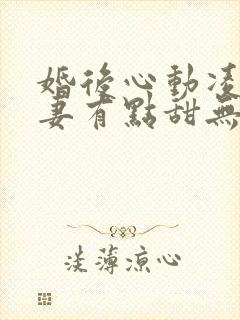 婚後心動凌
妻有點甜無
淡薄涼心